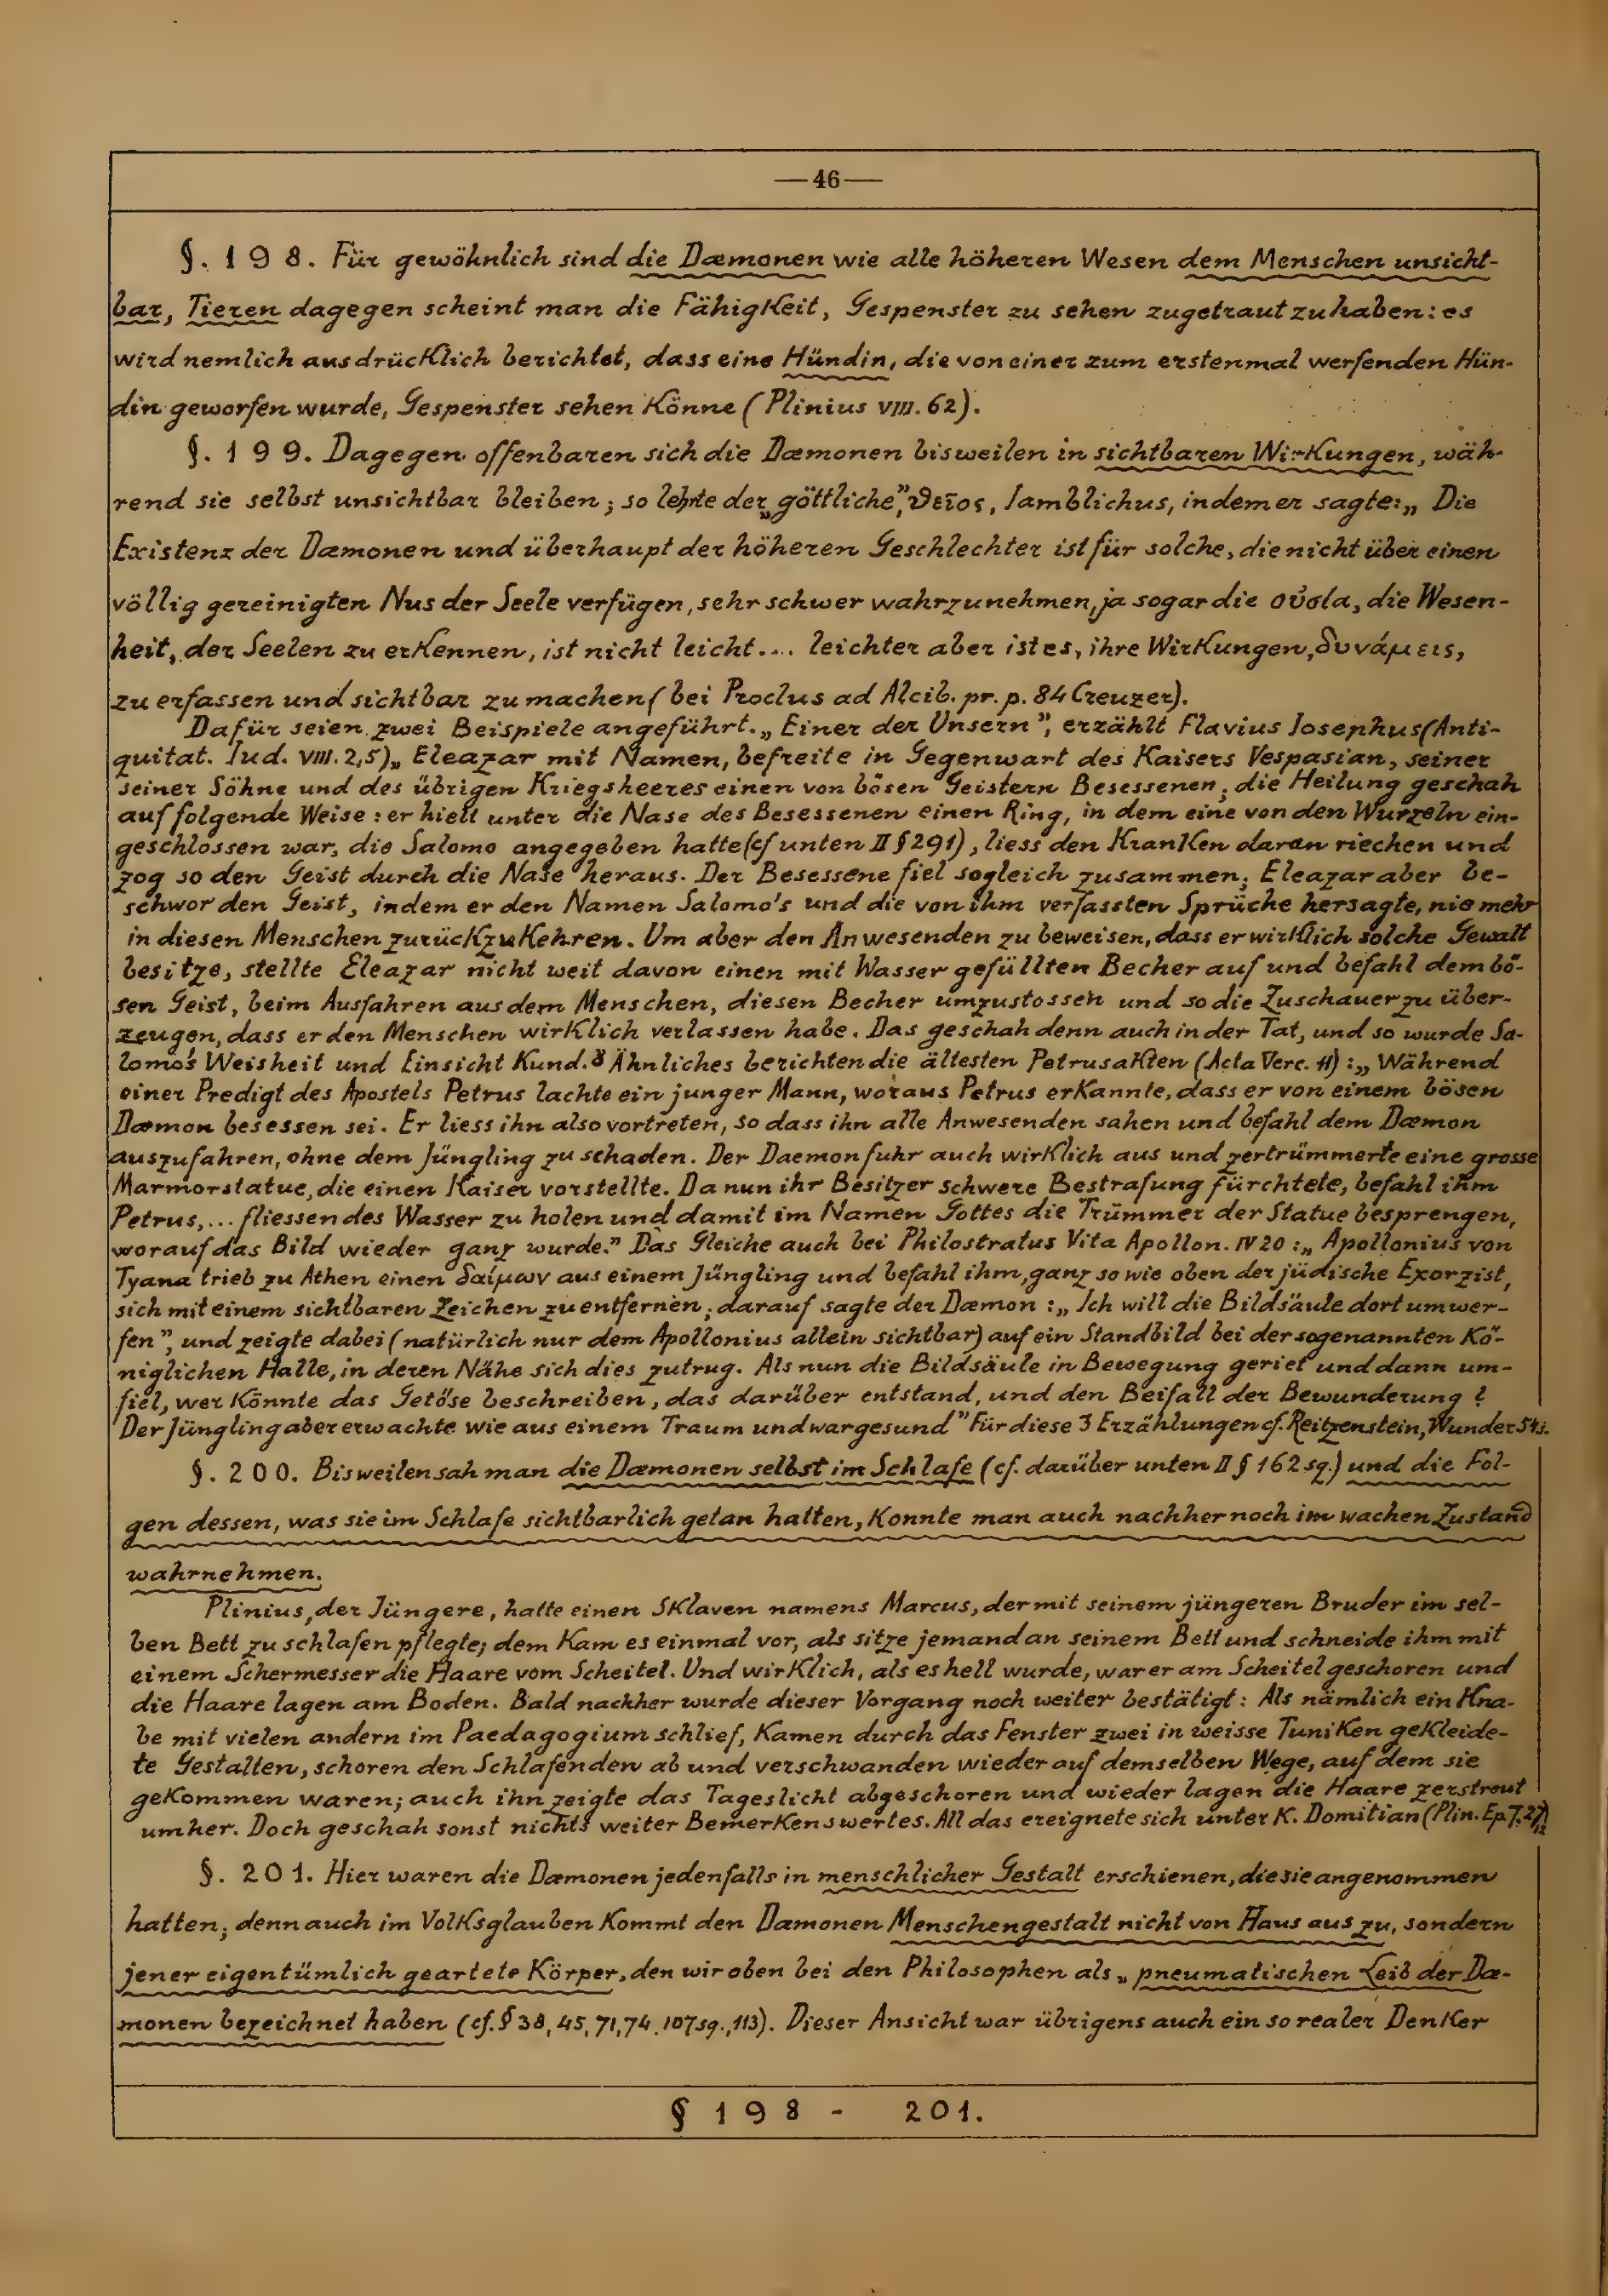 —46—
§. 198. Für gewöhnlich sind die Dæmonen wie alle höheren Wesen dem Menschen unsicht-
bar, Tieren dagegen scheint man die Fähigkeit, Gespenster zu sehen zugetraut zu haben: es
wird nemlich ausdrücklich berichtet, dass eine Hündin, die von einer zum erstenmal werfenden Hün-
din geworfen wurde, Gespenster sehen könne (Plinius VIII. 62).
§. 199. Dagegen offenbaren sich die Dæmonen bisweilen in sichtbaren Wirkungen, wäh-
rend sie selbst unsichtbar bleiben; so lehrte der „göttliche”, ϑεῖος, Iamblichus, indem er sagte: „Die
Existenz der Dæmonen und überhaupt der höheren Geschlechter ist für solche, die nicht über einen
völlig gereinigten Nus der Seele verfügen, sehr schwer wahrzunehmen, ja sogar die οὐσία, die Wesen-
heit, der Seelen zu erkennen, ist nicht leicht.... leichter aber ist es, ihre Wirkungen, δυνάμεις,
zu erfassen und sichtbar zu machen (bei Proclus ad Alcib. pr. p. 84 Creuzer).
Dafür seien zwei Beispiele angeführt. „Einer der Unsern”, erzählt Flavius Iosephus (Anti-
quitat. Iud. VIII. 2,5) „Eleazar mit Namen, befreite in Gegenwart des Kaisers Vespasian, seiner
seiner Söhne und des übrigen Kriegsheeres einen von bösen Geistern Besessenen; die Heilung geschah
auf folgende Weise: er hielt unter die Nase des Besessenen einen Ring, in dem eine von den Wurzeln ein-
geschlossen war, die Salomo angegeben hatte (cf unten II § 291), liess den Kranken daran riechen und
zog so den Geist durch die Nase heraus. Der Besessene fiel sogleich zusammen; Eleazar aber be-
schwor den Geist, indem er den Namen Salomo's und die von ihm verfassten Sprüche hersagte, nie mehr
in diesen Menschen zurückzukehren. Um aber den Anwesenden zu beweisen, dass er wirklich solche Gewalt
besitze, stellte Eleazar nicht weit davon einen mit Wasser gefüllten Becher auf und befahl dem bö-
sen Geist, beim Ausfahren aus dem Menschen, diesen Becher umzustossen und so die Zuschauer zu über-
zeugen, dass er den Menschen wirklich verlassen habe. Das geschah denn auch in der Tat, und so wurde Sa-
lomo's Weisheit und Einsicht kund.” Ähnliches berichten die ältesten Petrusakten (Acta Verc. 11): „Während
einer Predigt des Apostels Petrus lachte ein junger Mann, woraus Petrus erkannte, dass er von einem bösen
Dæmon besessen sei. Er liess ihn also vortreten, so dass ihn alle Anwesenden sahen und befahl dem Dæmon
auszufahren, ohne dem Jüngling zu schaden. Der Daemon fuhr auch wirklich aus und zertrümmerte eine grosse
Marmorstatue, die einen Kaiser vorstellte. Da nun ihr Besitzer schwere Bestrafung fürchtete, befahl ihm
Petrus,... fliessendes Wasser zu holen und damit im Namen Gottes die Trümmer der Statue besprengen,
worauf das Bild wieder ganz wurde.” Das Gleiche auch bei Philostratus Vita Apollon. IV 20: „Apollonius von
Tyana trieb zu Athen einen δαίμων aus einem Jüngling und befahl ihm, ganz so wie oben der jüdische Exorzist,
sich mit einem sichtbaren Zeichen zu entfernen; darauf sagte der Dæmon: „Ich will die Bildsäule dort umwer-
fen”, und zeigte dabei (natürlich nur dem Apollonius allein sichtbar) auf ein Standbild bei der sogenannten Kö-
niglichen Halle, in deren Nähe sich dies zutrug. Als nun die Bildsäule in Bewegung geriet und dann um-
fiel, wer könnte das Getöse beschreiben, das darüber entstand, und den Beifall der Bewunderung?
Der Jüngling aber erwachte wie aus einem Traum und war gesund” Für diese 3 Erzählungen cf. Reitzenstein, Wunder 54 s.
§. 200. Bisweilen sah man die Dæmonen selbst im Schlafe (cf. darüber unten II § 162 sq.) und die Fol-
gen dessen, was sie im Schlafe sichtbarlich getan hatten, konnte man auch nachher noch im wachen Zustand
wahrnehmen.
Plinius, der Jüngere, hatte einen Sklaven namens Marcus, der mit seinem jüngeren Bruder im sel-
ben Bett zu schlafen pflegte; dem kam es einmal vor, als sitze jemand an seinem Bett und schneide ihm mit
einem Schermesser die Haare vom Scheitel. Und wirklich, als es hell wurde, war er am Scheitel geschoren und
die Haare lagen am Boden. Bald nachher wurde dieser Vorgang noch weiter bestätigt: Als nämlich ein Kna-
be mit vielen andern im Paedagogium schlief, kamen durch das Fenster zwei in weisse Tuniken gekleide-
te Gestalten, schoren den Schlafenden ab und verschwanden wieder auf demselben Wege, auf dem sie
gekommen waren; auch ihn zeigte das Tageslicht abgeschoren und wieder lagen die Haare zerstreut
umher. Doch geschah sonst nichts weiter Bemerkenswertes. All das ereignete sich unter K. Domitian (Plin. Ep. 7. 27,12)
§. 201. Hier waren die Dæmonen jedenfalls in menschlicher Gestalt erschienen, die sie angenommen
hatten; denn auch im Volksglauben kommt den Dæmonen Menschengestalt nicht von Haus aus zu, sondern
jener eigentümlich geartete Körper, den wir oben bei den Philosophen als „pneumatischen Leib der Dæ-
monen bezeichnet haben (cf. § 38, 45, 71, 74. 107 sg., 113). Dieser Ansicht war übrigens auch ein so realer Denker
§ 198 - 201.